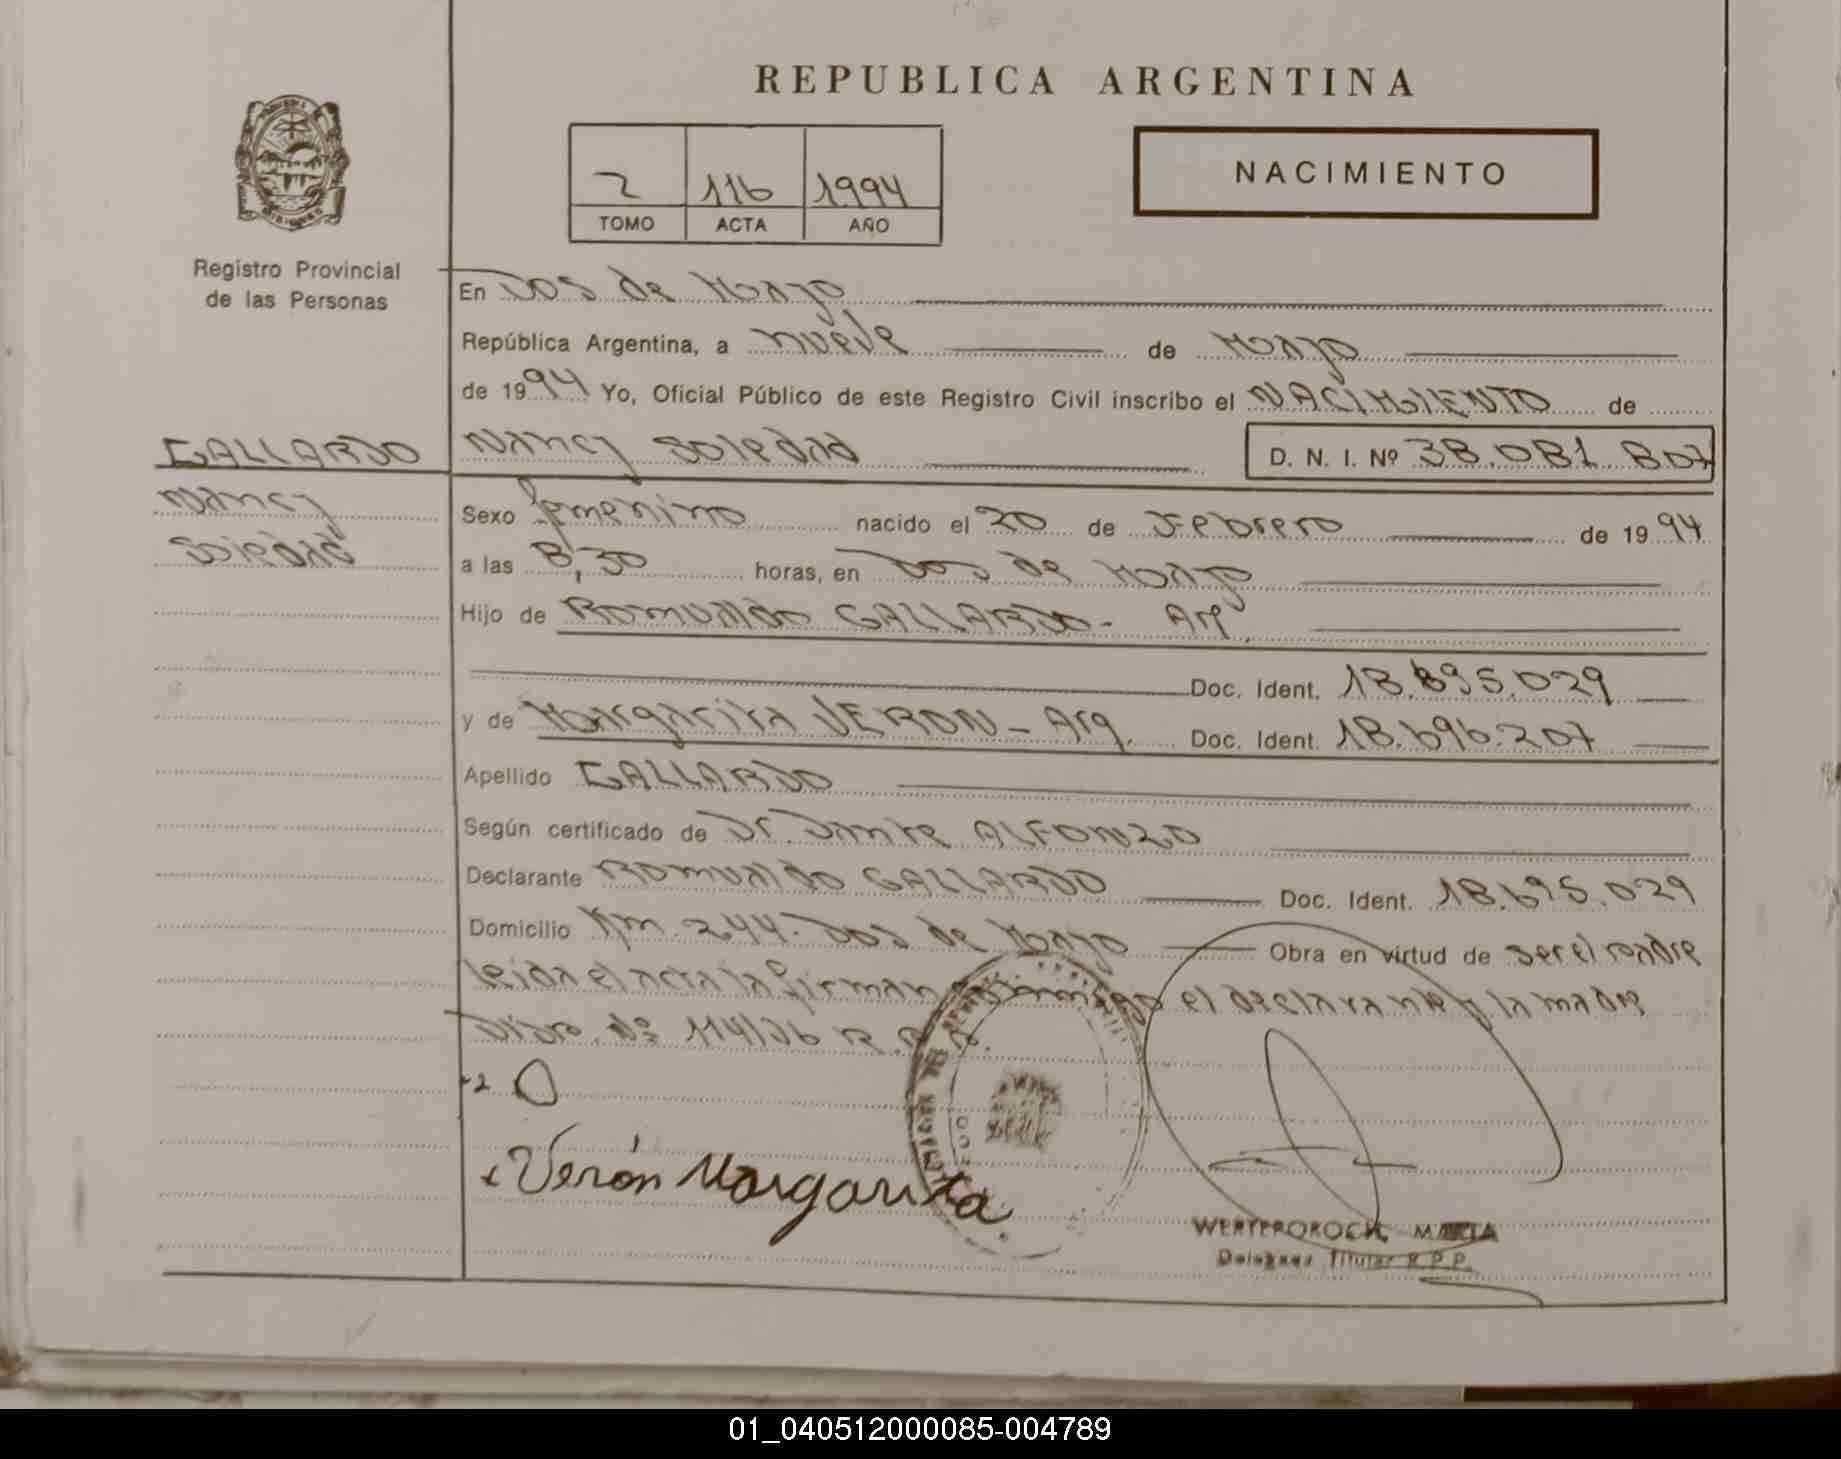 REPUBLICA ARGENTINA
2 116 1994
TOMO ACTA AÑO
NACIMIENTO
Registro Provincial
de las Personas
En Dos de Mayo
República Argentina, a nueve de Mayo
de 1994 Yo, Oficial Público de este Registro Civil inscribo el NACIMIENTO de
GALLARDO
Nancy
Soledad
Nancy Soledad D. N. I. Nº 38.081.807
Sexo femenino nacido el 20 de Febrero de 1994
a las 8,30 horas, en Dos de Mayo
Hijo de Romualdo GALLARDO - Arg.
Doc. Ident. 18.695.029
y de Margarita VERON - Arg. Doc. Ident. 18.696.207
Apellido GALLARDO
Según certificado de Dr. Dante ALFONZO
Declarante Romualdo GALLARDO Doc. Ident. 18.695.029
Domicilio Km. 244. Dos de Mayo Obra en virtud de ser el padre
leida el acta la firman conmigo el declarante y la madre
114/76 R.P.P.
Verón Margarita
WERYFOROCH, MARTA
Delegada Titular R.P.P.
01_040512000085-004789